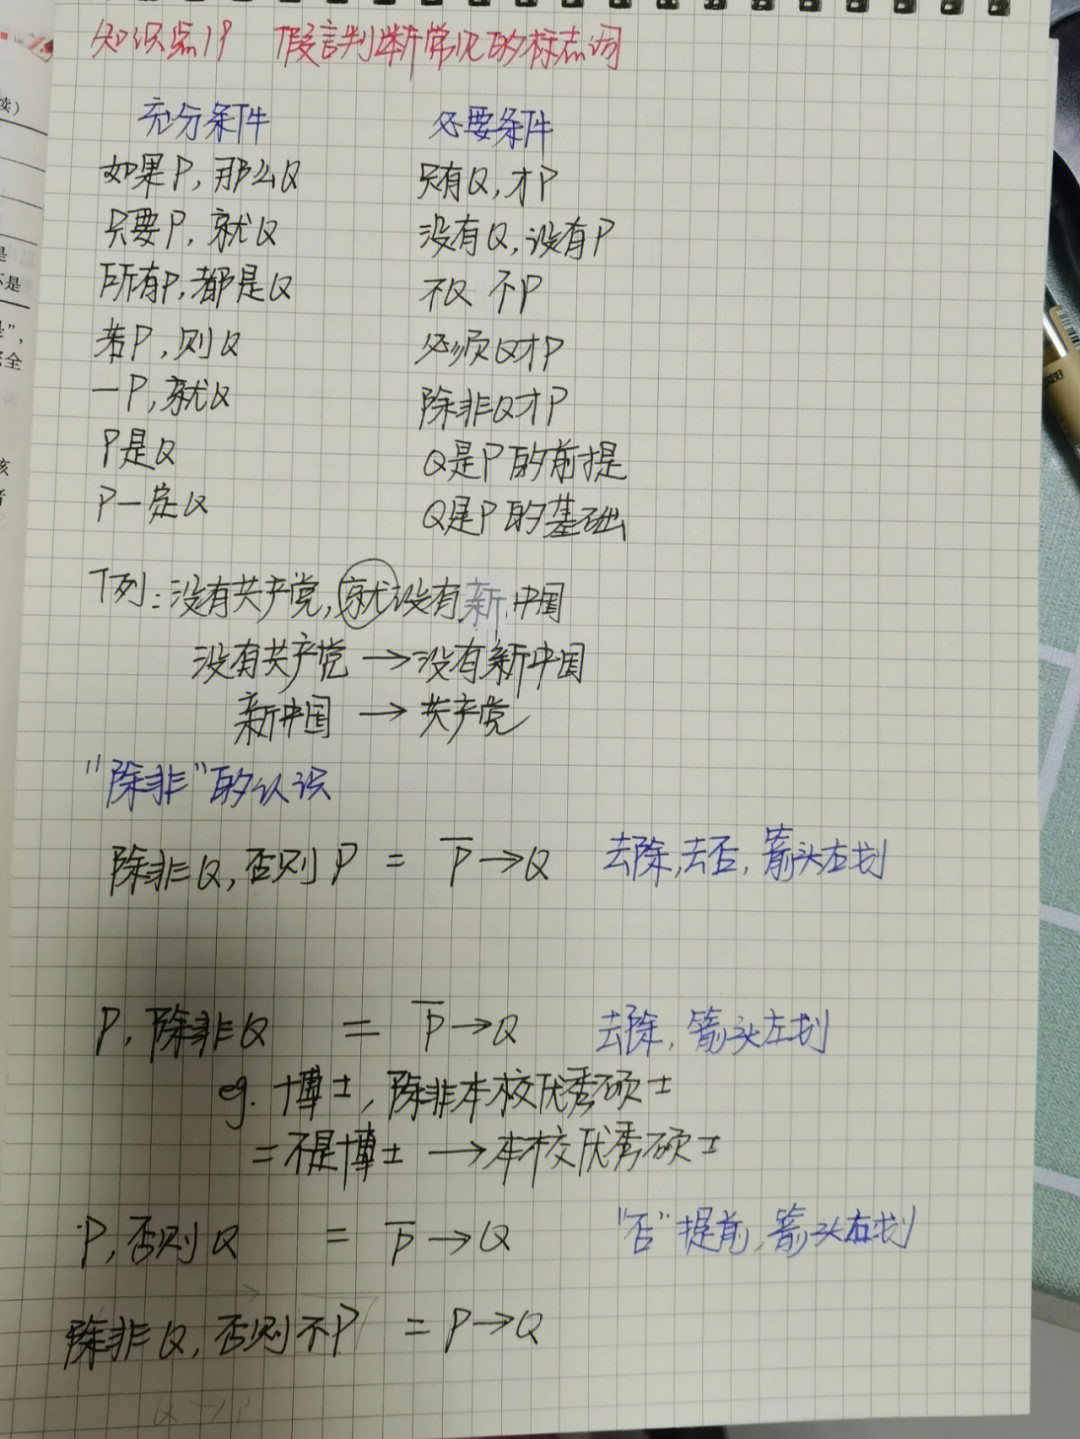 知识点19 假言判断常见的标志词
充分条件 必要条件
如果P,那么Q 只有Q,才P
只要P,就Q 没有Q,没有P
所有P,都是Q 不Q 不P
若P,则Q 必须Q才P
一P,就Q 除非Q才P
P是Q Q是P的前提
P一定Q Q是P的基础
下列:没有共产党,就没有新中国
没有共产党→没有新中国
新中国→共产党
"除非"的认识
除非Q,否则P = P̅→Q 去除,去否,箭头左划
P,除非Q = P̅→Q 去除,箭头左划
eg. 博士,除非本校优秀硕士
=不是博士→本校优秀硕士
P,否则Q = P̅→Q "否"提前,箭头右划
除非Q,否则不P = P→Q